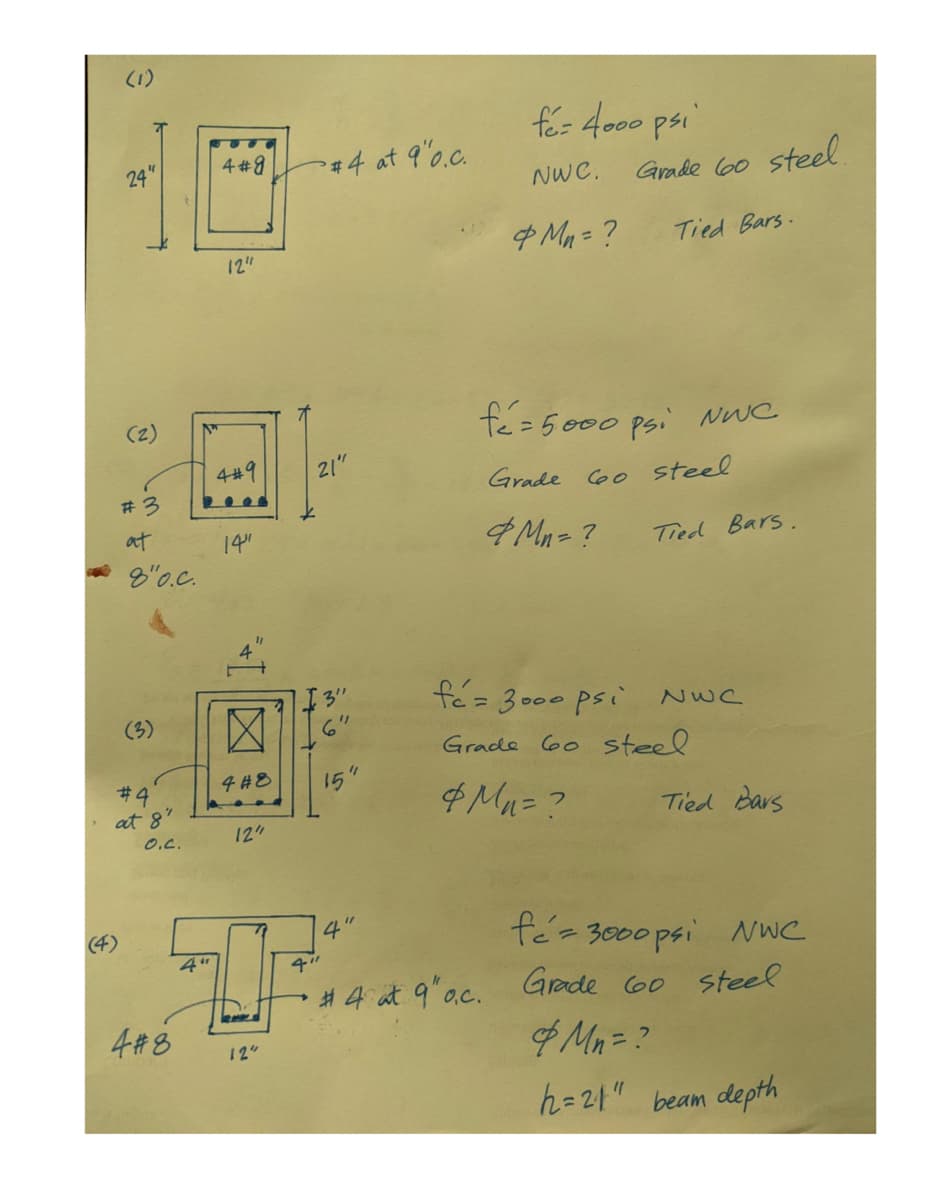 (1)
24"
4#8
#4 at 9"o.c.
12"
fć= 4000 psi
NWC. Grade 60 steel.
φMn=? Tied Bars.
(2)
4#9
21"
#3
at
8"o.c.
14"
fć=5000 psi NWC
Grade 60 steel
φMn=? Tied Bars.
4"
(3)
3"
6"
15"
4#8
#4
at 8"
o.c.
12"
fć=3000 psi NWC
Grade 60 steel
φMn=? Tied Bars
(4)
4"
4"
4"
#4 at 9"o.c.
4#8
12"
fć=3000psi NWC
Grade 60 steel
φMn=?
h=21" beam depth